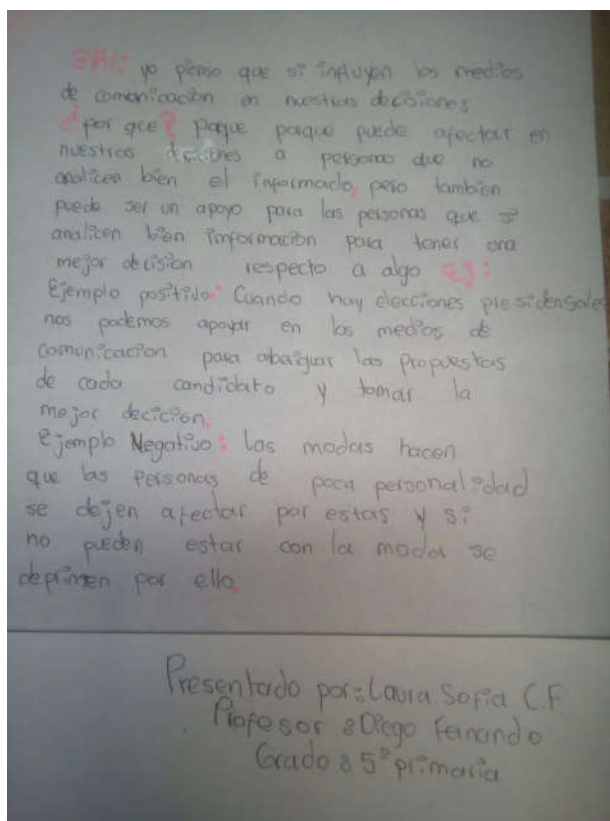 R/: yo pienso que si influyen los medios
de comunicación en nuestras decisiones
¿por qce? poque porque puede afectar en
nuestras deciones a personas que no
analicen bien el informado, pero también
puede ser un apoyo para las personas que si
analicen bien información para tener una
mejor decision respecto a algo Ej:
Ejemplo positivo: Cuando hay elecciones presidensales
nos podemos apoyar en los medios de
comunicacion para abaiguar las propuestas
de cada candidato y tomar la
mejor decición.
Ejemplo Negativo: las modas hacen
que las personas de poca personalidad
se dejen afectar por estas y si
no pueden estar con la moda se
deprimen por ello.
Presentado por: Laura Sofia C.F
Profesor: Diego Fernando
Grado: 5° primaria